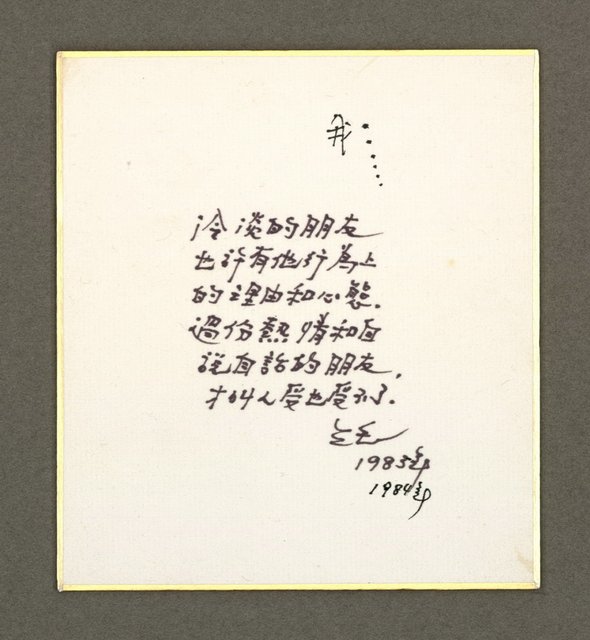 我......
冷淡的朋友
也許有他行為上
的理由和心態.
過份熱情和自
說自話的朋友,
才叫人受也受不了.
三毛
1983年
1984年